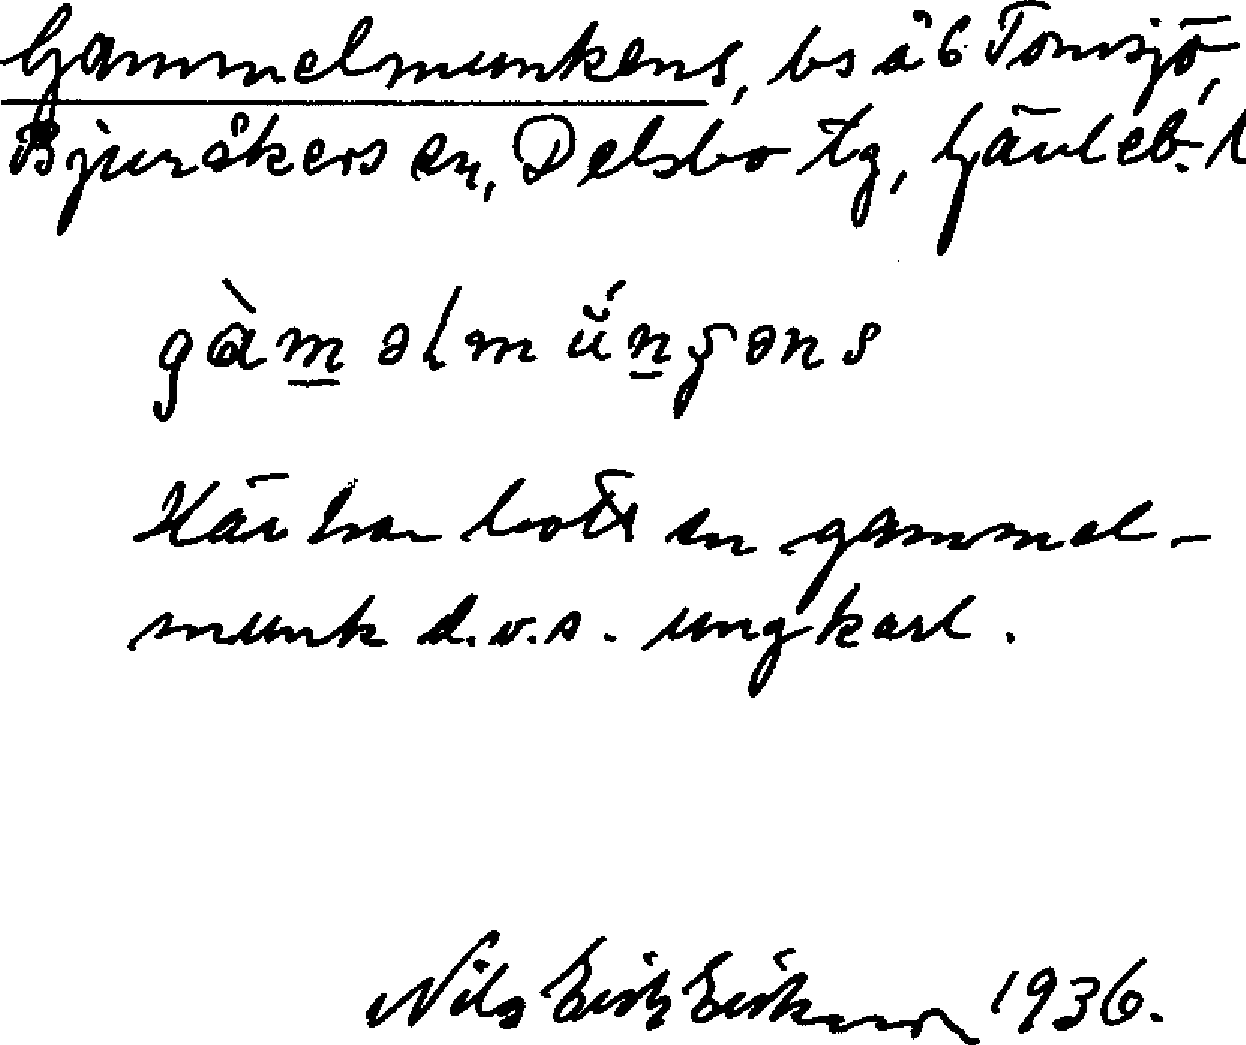 Gammelmunkens, bs å 6 Tomsjö,
Bjuråkers sn, Delsbo tg, Gävleb. l
gàm̲əlmŭ́n̲ʒəns
Här har bott en gammel-
munk d.v.s. ungkarl.
Nils Erik Eriksson 1936.